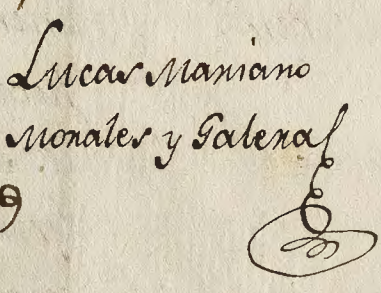 Lucas Mariano
Morales y Galena